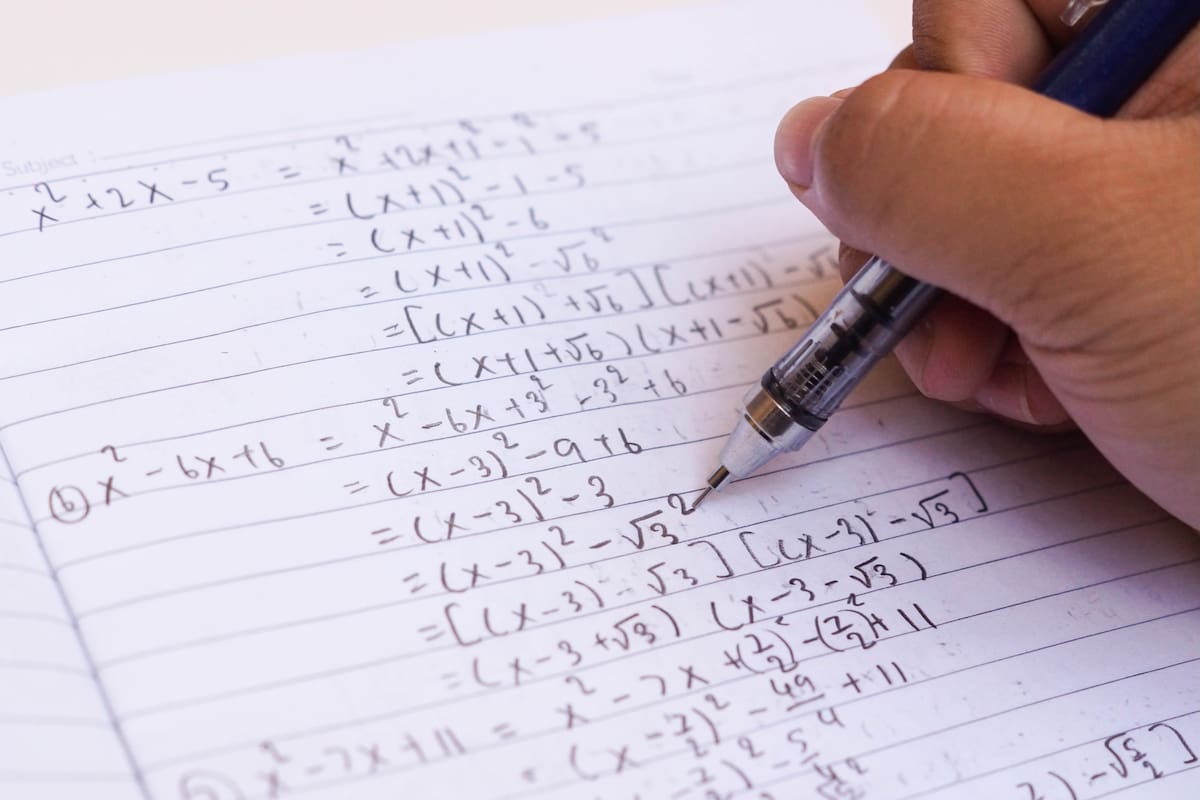 Subject :
x² + 2x - 5 = x² + 2x + 1² - 1² - 5
= (x+1)² - 1 - 5
= (x+1)² - 6
= (x+1)² - √6²
= [(x+1)² + √6] [(x+1) - √6
= (x+1+√6) (x+1-√6)
(b) x² - 6x + 6 = x² - 6x + 3² - 3² + 6
= (x-3)² - 9 + 6
= (x-3)² - 3
= (x-3)² - √3²
= [(x-3) - √3] [(x-3)² - √3]
= (x-3+√3) (x-3-√3)
x² - 7x + 11 = x² - 7x + (7/2)² - (7/2)² + 11
= (x - 7/2)² - 49/4 + 11
7/2)² - 5/4
) - √5/2]